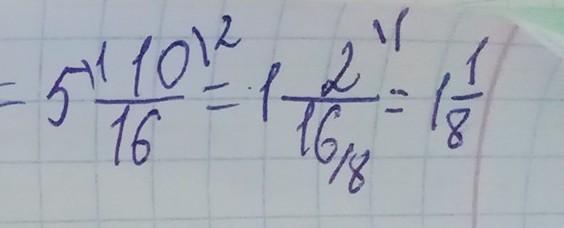 = 5\1 10\2/16 = 1 2\1/16/8 = 1 1/8